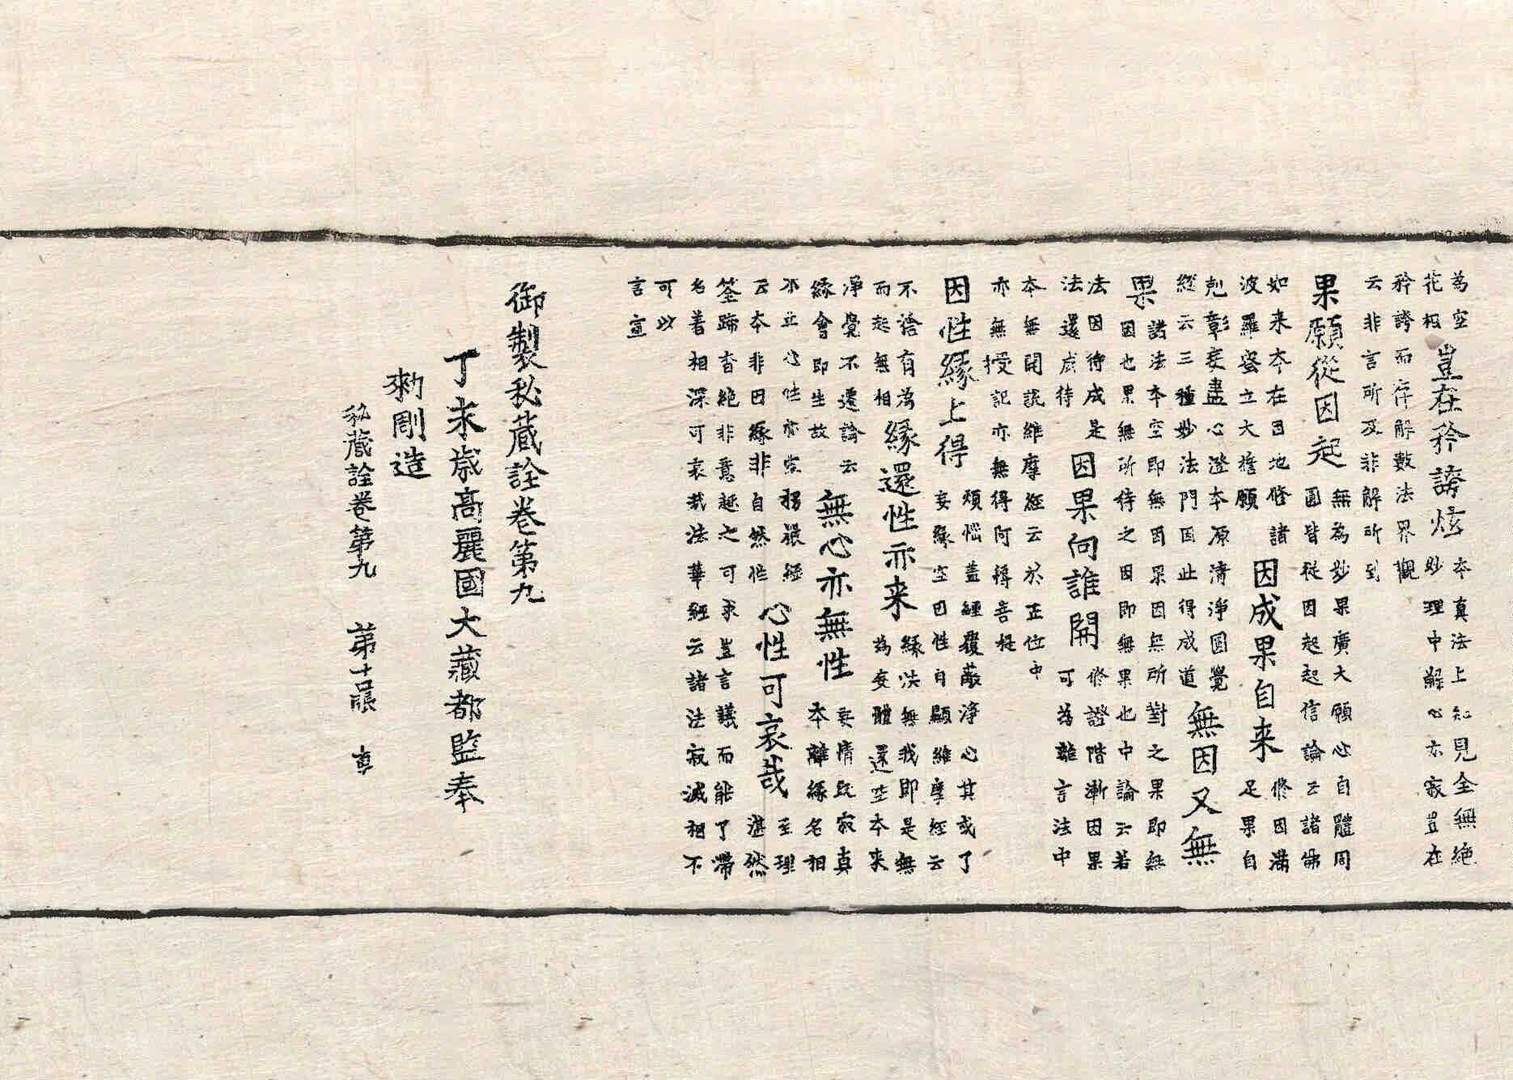 為空
花極
豈在矜誇炫
本真法上知見全無絕
妙理中解心亦寂豈在
矜誇而存解數法界觀
云非言所及非解所到
果願從因起
無為妙果廣大願心自體周
圓皆從因起起信論云諸佛
如来本在因地修諸
波羅蜜立大擔願
因成果自来
修因滿
足果自
剋彰妄盡心澄本原清淨圓覺
經云三種妙法門因此得成道
無因又無
果
諸法本空即無因果因無所對之果即無
因也果無所待之因即無果也中論云若
法因待成是
法還成待
因果何誰開
修證階漸因果
可為離言法中
本無開說維摩經云於正位中
亦無授記亦無得阿耨菩提
因性緣上得
煩惱蓋纏覆蔽淨心其或了
妄緣空因性自顯維摩經云
不捨有為
而起無相
緣還性亦来
緣決無我即是無
為妄體還空本来
淨覺不遷論云
緣會即生故
無心亦無性
妄情既寂真
本離緣名相
不立心性亦常楞嚴經
云本非因緣非自然性
心性可哀哉
至理
湛然
筌蹄杳絕非意趣之可求豈言議而能了滯
名著相深可哀哉法華經云諸法寂滅相不
可以
言宣
御製秘藏詮卷第九
丁未歲高麗國大藏都監奉
勑彫造
秘藏詮卷第九 第十張